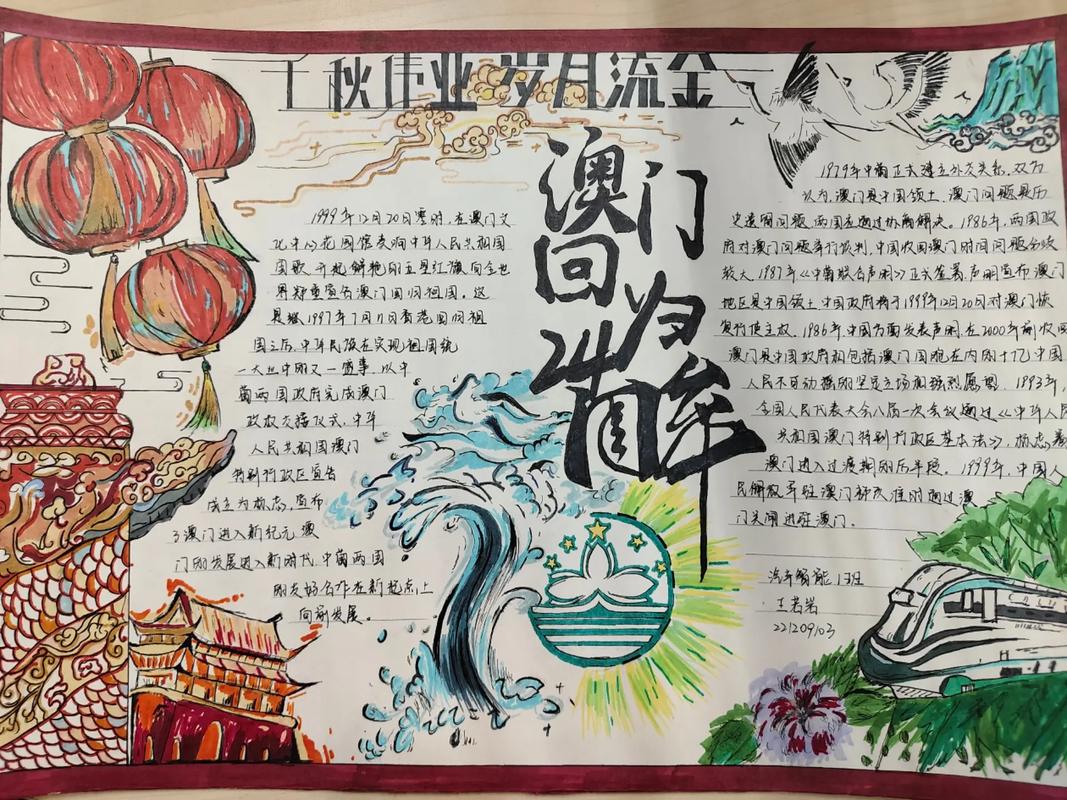 千秋伟业 岁月流金
澳门
回归
1999年12月20日零时,在澳门文
化中心花园馆奏响中华人民共和国
国歌,升起鲜艳的五星红旗向全世
界郑重宣告澳门回归祖国。这
是继1997年7月1日香港回归祖
国之后,中华民族在实现祖国统
一大业中的又一盛事,以中
葡两国政府完成澳门
政权交接仪式,中华
人民共和国澳门
特别行政区宣告
成立为标志,宣布
了澳门进入新纪元,澳
门的发展进入新时代,中葡两国
的友好合作在新起点上
向前发展。
1979年中葡正式建立外交关系,双方
认为,澳门是中国领土,澳门问题是历
史遗留问题,两国应通过协商解决。1986年,两国政
府对澳门问题举行谈判,中国收回澳门时间问题分歧
较大,1987年《中葡联合声明》正式签署,声明宣布澳门
地区是中国领土,中国政府将于1999年12月20日对澳门恢
复行使主权。1986年,中国方面发表声明,在2000年前收回
澳门是中国政府和包括澳门同胞在内的十亿中国
人民不可动摇的坚定立场和强烈愿望。1993年,
全国人民代表大会八届一次会议通过《中华人民
共和国澳门特别行政区基本法》,标志着
澳门进入过渡期的后半段。1999年,中国人
民解放军驻澳门部队准时通过澳
门关闸进驻澳门。
汽车智能1班
王若岩
22120903